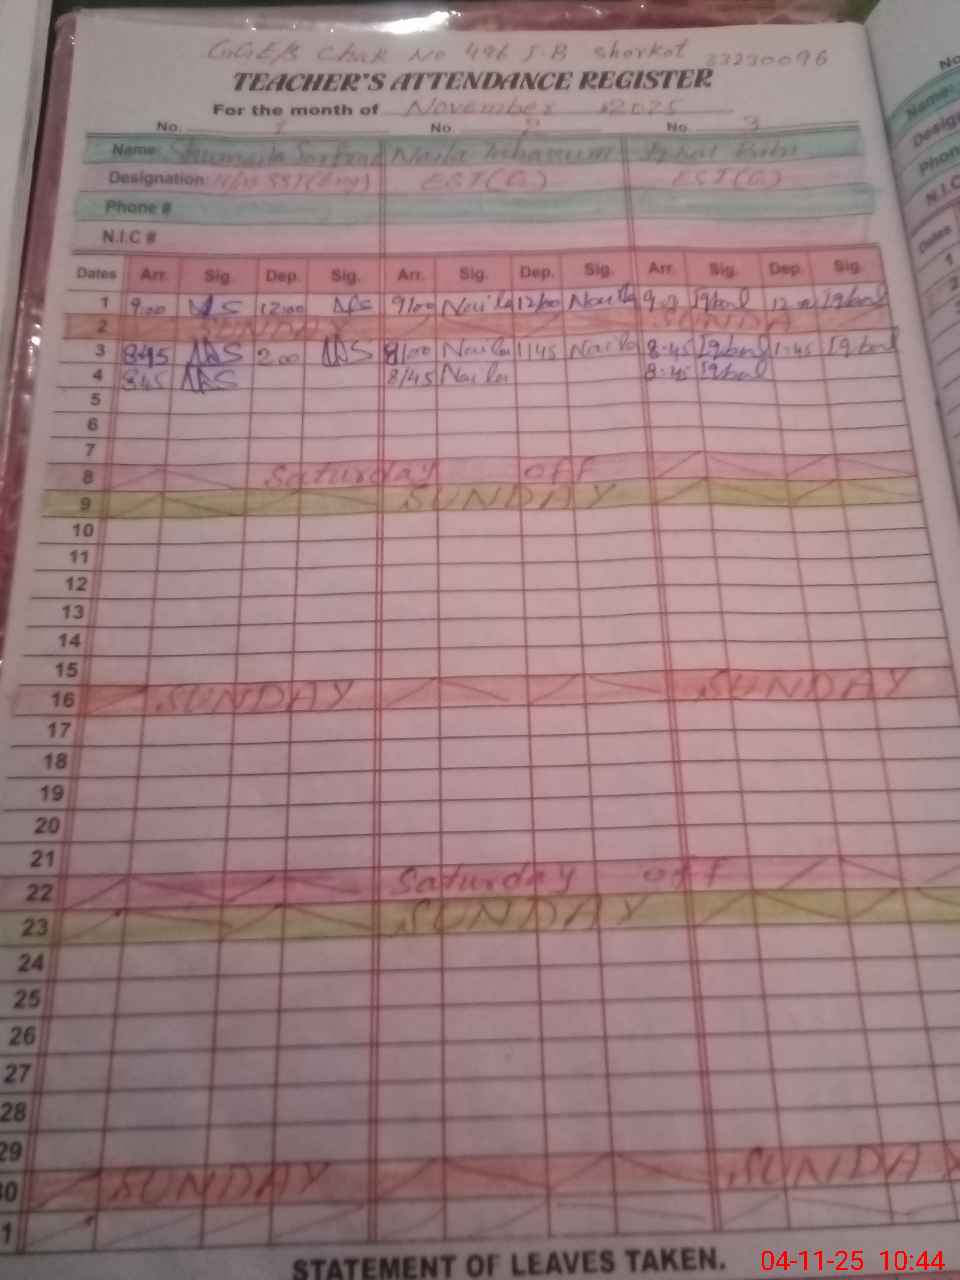 G.G.E/S Chak No 496 J-B Shorkot 33230096
TEACHER'S ATTENDANCE REGISTER
For the month of November 2025
No. 1 No 2 No 3
Name: Naila Iqbal Bibi
Designation: SST EST (G) EST (G)
Phone #
N.I.C #
Dates Arr. Sig. Dep. Sig. Arr. Sig. Dep. Sig. Arr. Sig. Dep. Sig.
1 9:00 12:00 9/00 Naila 12/00 Naila Iqbal Iqbal
2 SUNDAY SUNDA
3 8:45 2:00 Naila 1/45 Naila 8:45 Iqbal 1:45 Iqbal
4 8:45 8/45 Naila 8:45 Iqbal
5
6
7
8 Saturday off
9 SUNDAY
10
11
12
13
14
15
16 SUNDAY SUNDAY
17
18
19
20
21
22 Saturday off
23 SUNDAY
24
25
26
27
28
29
30 SUNDAY SUNDAY
1
STATEMENT OF LEAVES TAKEN.
04-11-25 10:44
No
Name:
Desig
Phon
N.I.C
Dates
1
2
3